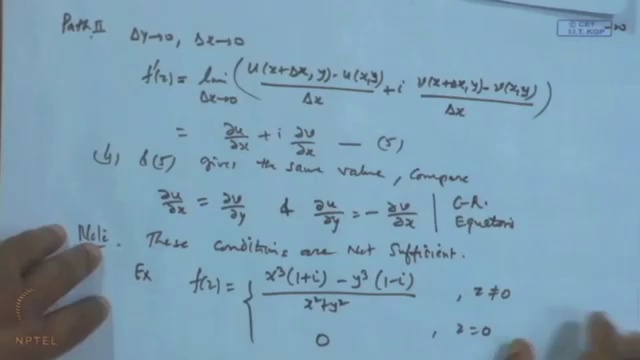 Path II Δy→0, Δx→0
© CET
I.I.T. KGP
f'(z) = lim Δx→0 ( u(x+Δx, y) - u(x,y) / Δx + i v(x+Δx, y) - v(x,y) / Δx )
= ∂u/∂x + i ∂v/∂x — (5)
(4) & (5) gives the same value, Compare
∂u/∂x = ∂v/∂y & ∂u/∂y = - ∂v/∂x | C-R. Equations
Note: These conditions are Not Sufficient.
Ex f(z) = { x³(1+i) - y³(1-i) / x²+y² , z≠0
0 , z=0
NPTEL